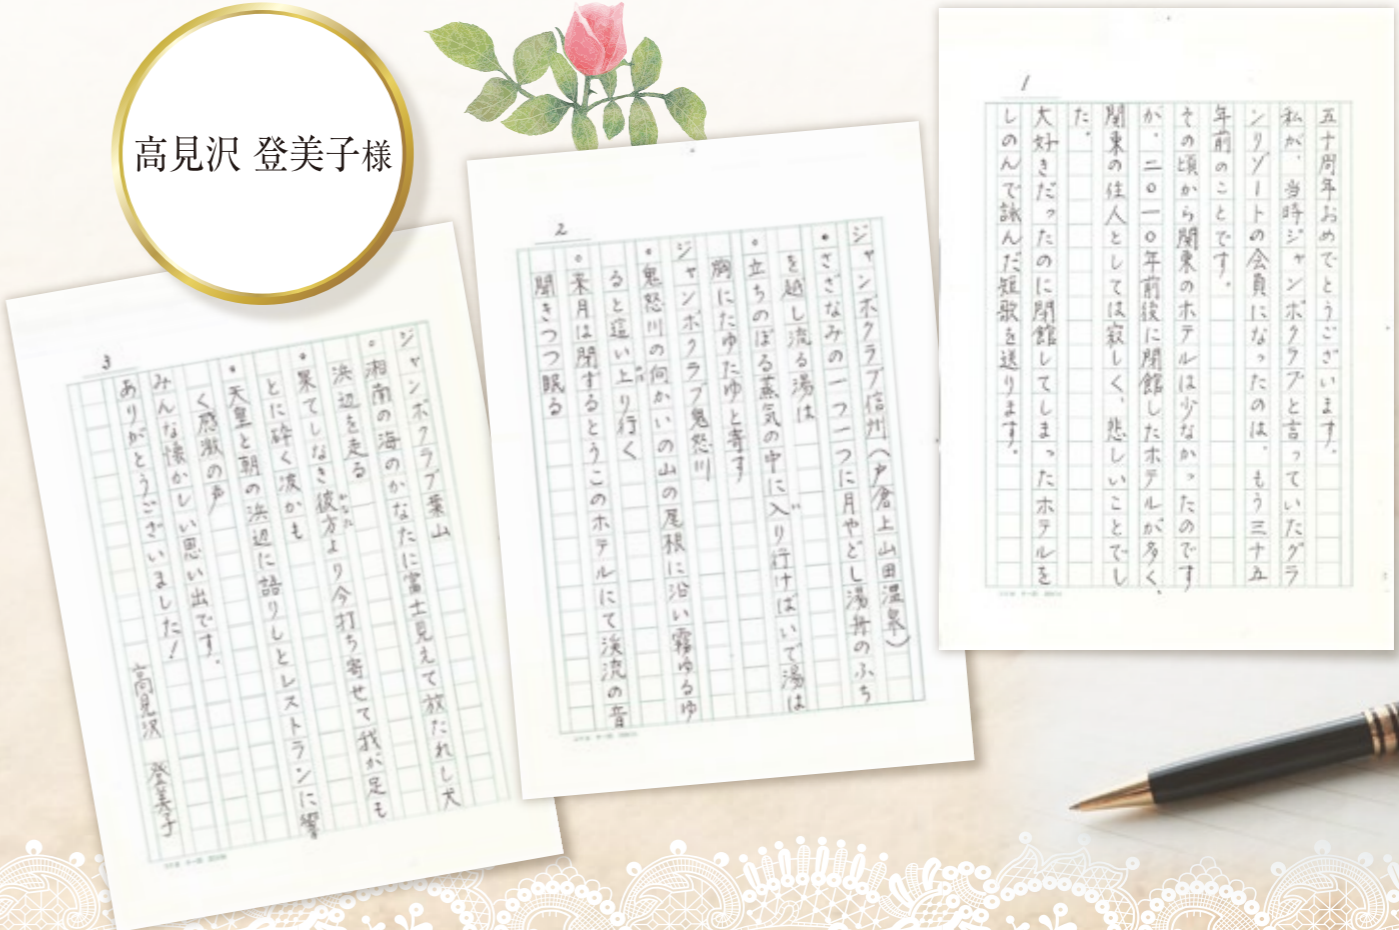 高見沢 登美子様
1
五十周年おめでとうございます。
私が、当時ジャンボクラブと言っていたグラ
ンリゾートの会員になったのは、もう三十五
年前のことです。
その頃から関東のホテルは少なかったのです
が、二〇一〇年前後に閉館したホテルが多く、
関東の住人としては寂しく、悲しいことでし
た。
大好きだったのに閉館してしまったホテルを
しのんで詠んだ短歌を送ります。
2
ジャンボクラブ信州(戸倉上山田温泉)
・さざなみの一つ一つに月やどし湯舟のふち
を越し流る湯は
・立ちのぼる蒸気の中に入り行けばいで湯は
胸にたゆたゆと寄す
ジャンボクラブ鬼怒川
・鬼怒川の向かいの山の尾根に沿い霧ゆるゆ
ると這い上り行く
・来月は閉するとうこのホテルにて渓流の音
聞きつつ眠る
3
ジャンボクラブ葉山
・湘南の海のかなたに富士見えて放たれし犬
浜辺を走る
・果てしなき彼方より今打ち寄せて我が足も
かなた
とに砕く波かも
・天皇と朝の浜辺に語りしとレストランに響
く感激の声
みんな懐かしい思い出です。
ありがとうございました!
高見沢 登美子